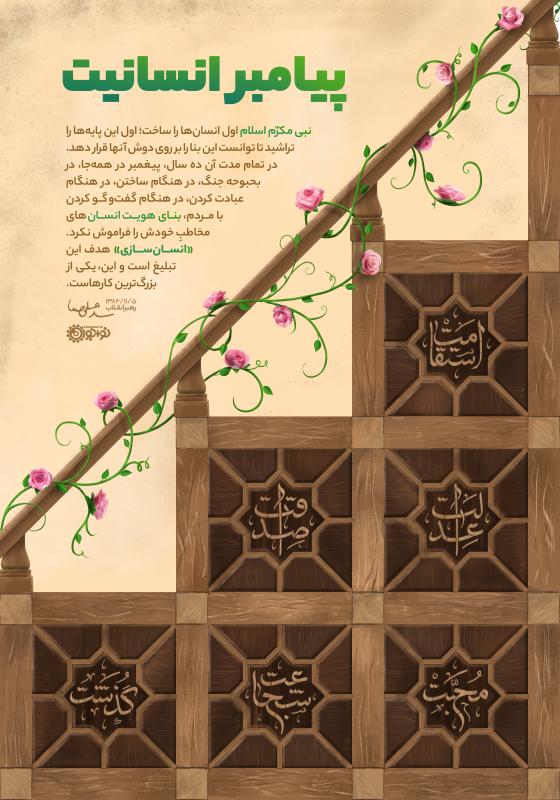 پیامبر انسانیت
نبی مکرّم اسلام اول انسان‌ها را ساخت؛ اول این پایه‌ها را
تراشید تا توانست این بنا را بر روی دوش آنها قرار دهد.
در تمام مدت آن ده سال، پیغمبر در همه‌جا، در
بحبوحه جنگ، در هنگام ساختن، در هنگام
عبادت کردن، در هنگام گفت‌و‌گو کردن
با مردم، بنای هویت انسان‌های
مخاطبِ خودش را فراموش نکرد.
«انسان‌سازی» هدف این
تبلیغ است و این، یکی از
بزرگ‌ترین کارهاست.
۱۳۸۴/۱۱/۵
رهبر انقلاب
استقامت
صداقت
عدالت
گذشت
شجاعت
محبّت